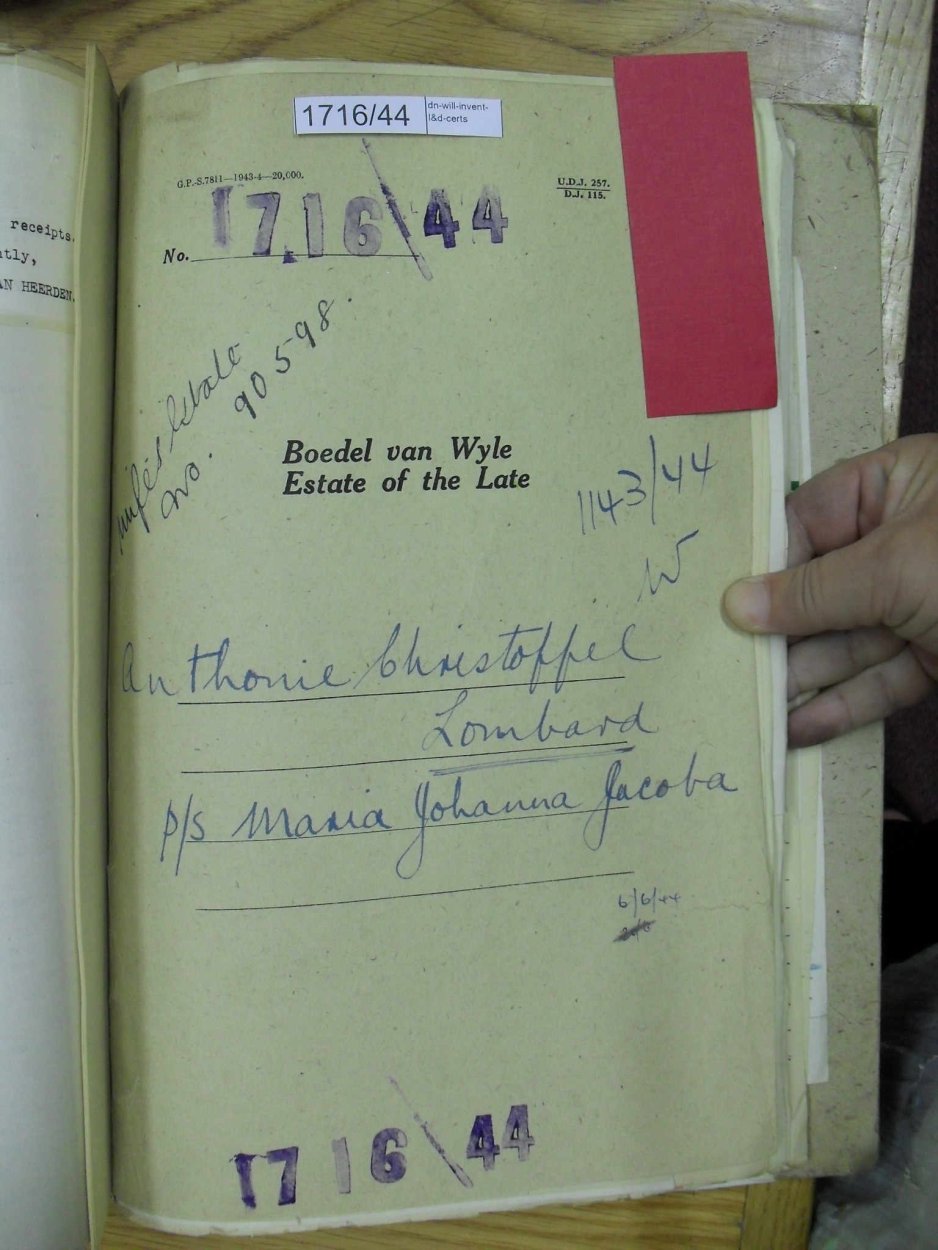 receipts.
ntly,
AN HEERDEN.
1716/44
dn-will-invent-
l&d-certs
G.P.-S.7811—1943-4—20,000.
U.D.J. 257.
D.J. 115.
No. 1716\44
Wife's Estate
No. 90598.
Boedel van Wyle
Estate of the Late
1143/44
W
Anthonie Christoffel
Lombard
p/s Maria Johanna Jacoba
6/6/44
1716\44